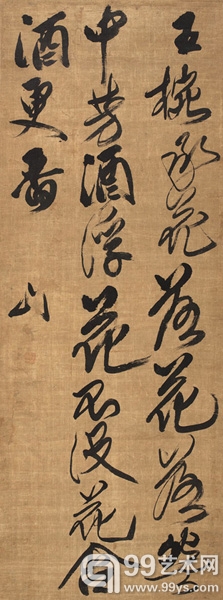 玉椀承花落花落椀
中芳酒浮花不没花含
酒更香 山
99艺术网
www.99ys.com